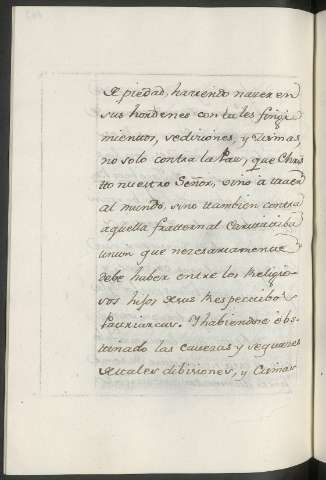 de piedad, haciendo nacer en
sus hordenes con tales fingi
mientos, sediciones, y Cismas,
no solo contra la Paz, que Chris
tto nuestro Señor, vino à traer
al mundo, sino ttambien contra
aquella fratternal Caritatiba
union que necesariamente
debe haber entre los Religio
sos hijos de sus Respectibos
Patriarcas. Y habiendose obs
tinado las cavezas y sequazes
de tales dibisiones, y Cismas